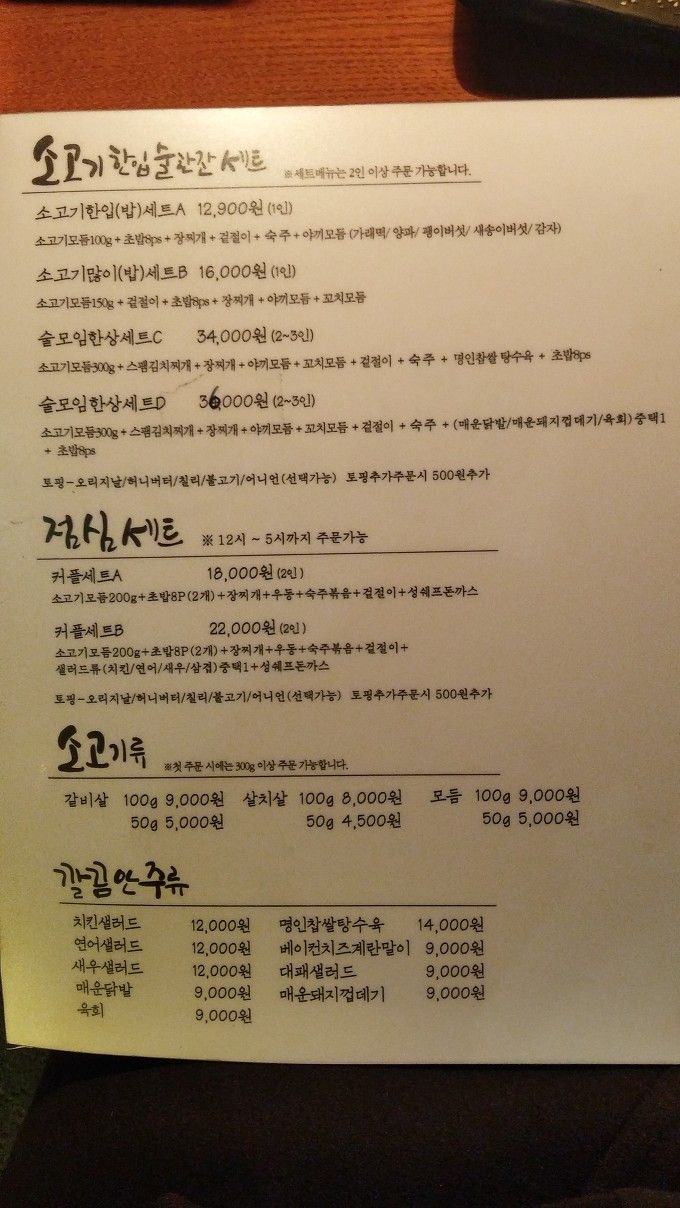 소고기 한입 술한잔 세트 ※세트메뉴는 2인 이상 주문 가능합니다.
소고기한입(밥)세트A 12,900원 (1인)
소고기모듬100g + 초밥8ps + 장찌개 + 겉절이 + 숙주 + 야끼모듬 (가래떡/ 양파/ 팽이버섯/ 새송이버섯/ 감자)
소고기많이(밥)세트B 16,000원 (1인)
소고기모듬150g + 겉절이 + 초밥8ps + 장찌개 + 야끼모듬 + 꼬치모듬
술모임한상세트C 34,000원 (2~3인)
소고기모듬300g + 스팸김치찌개 + 장찌개 + 야끼모듬 + 꼬치모듬 + 겉절이 + 숙주 + 명인찹쌀 탕수육 + 초밥8ps
술모임한상세트D 36,000원 (2~3인)
소고기모듬300g + 스팸김치찌개 + 장찌개 + 야끼모듬 + 꼬치모듬 + 겉절이 + 숙주 + (매운닭발/매운돼지껍데기/육회)중택1
+ 초밥8ps
토핑-오리지날/허니버터/칠리/불고기/어니언(선택가능) 토핑추가주문시 500원추가
점심 세트 ※ 12시 ~ 5시까지 주문가능
커플세트A 18,000원 (2인)
소고기모듬200g+초밥8P(2개)+장찌개+우동+숙주볶음+겉절이+성쉐프돈까스
커플세트B 22,000원 (2인)
소고기모듬200g+초밥8P(2개)+장찌개+우동+숙주볶음+겉절이+
샐러드류(치킨/연어/새우/삼겹)중택1+성쉐프돈까스
토핑-오리지날/허니버터/칠리/불고기/어니언(선택가능) 토핑추가주문시 500원추가
소고기류 ※첫 주문 시에는 300g 이상 주문 가능합니다.
갈비살 100g 9,000원 살치살 100g 8,000원 모듬 100g 9,000원
50g 5,000원 50g 4,500원 50g 5,000원
깔끔안주류
치킨샐러드 12,000원 명인찹쌀탕수육 14,000원
연어샐러드 12,000원 베이컨치즈계란말이 9,000원
새우샐러드 12,000원 대패샐러드 9,000원
매운닭발 9,000원 매운돼지껍데기 9,000원
육회 9,000원